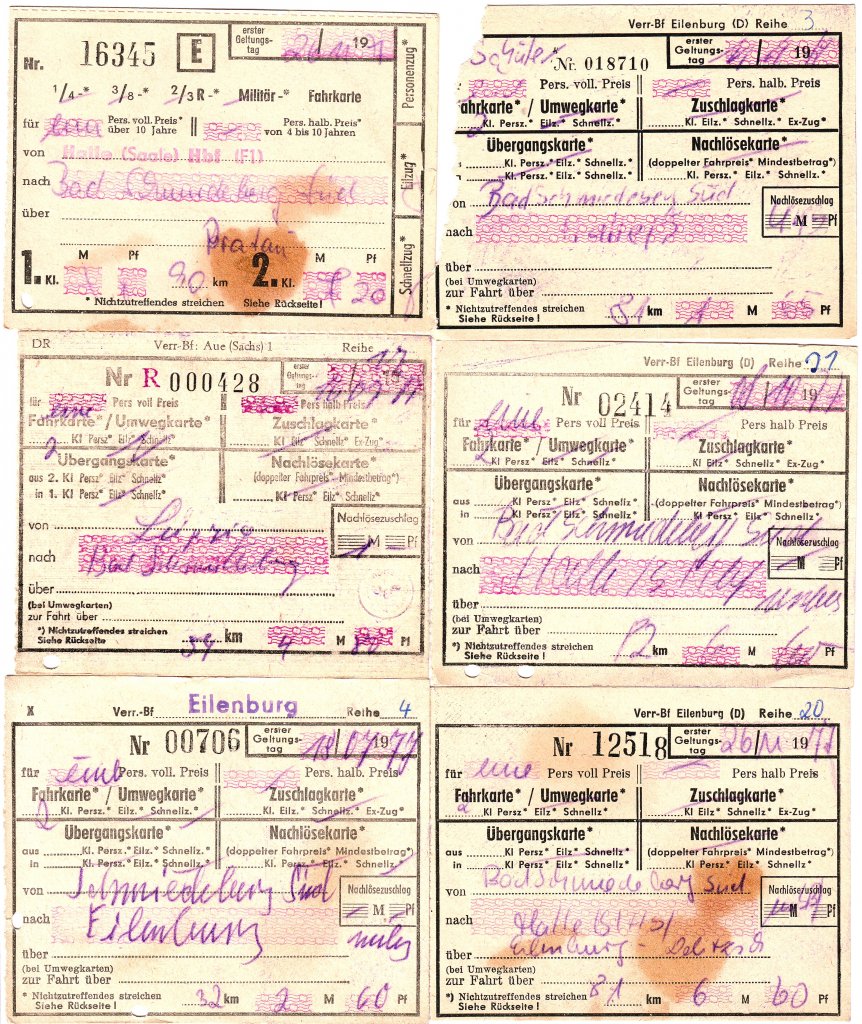 Nr. 16345 E erster Geltungstag 19
1/4-* 3/8-* 2/3 R-* Militär-* Fahrkarte
für Pers. voll. Preis* über 10 Jahre Pers. halb. Preis* von 4 bis 10 Jahren
von Halle (Saale) Hbf (F1)
nach Bad Schmiedeberg Süd
über
Pratau
1. Kl. M Pf 90 km 2. Kl. M Pf 20
* Nichtzutreffendes streichen Siehe Rückseite!
Personenzug*
Eilzug*
Schnellzug*
Verr-Bf Eilenburg (D) Reihe 3
Schüler Nr. 018710 erster Geltungstag 19
Pers. voll. Preis Pers. halb. Preis
Fahrkarte* / Umwegkarte* Zuschlagkarte*
Kl. Persz.* Eilz.* Schnellz.* Kl. Eilz.* Schnellz.* Ex-Zug*
Übergangskarte* Nachlösekarte*
Kl. Persz.* Eilz.* Schnellz.* (doppelter Fahrpreis* Mindestbetrag*)
Kl. Persz.* Eilz.* Schnellz.* Kl. Persz.* Eilz.* Schnellz.*
von Bad Schmiedeberg Süd Nachlösezuschlag
M Pf
nach
über
(bei Umwegkarten)
zur Fahrt über
*) Nichtzutreffendes streichen
Siehe Rückseite! 81 km 1 M Pf
DR Verr-Bf: Aue (Sachs) 1 Reihe 17
Nr R 000428 erster Geltungstag
für eine Pers voll Preis Pers halb Preis
Fahrkarte* / Umwegkarte* Zuschlagkarte*
2 Kl Persz* Eilz* Schnellz* Kl Eilz* Schnellz* Ex-Zug*
Übergangskarte* Nachlösekarte*
aus 2. Kl Persz* Eilz* Schnellz* (doppelter Fahrpreis* Mindestbetrag*)
in 1. Kl Persz* Eilz* Schnellz* Kl Persz* Eilz* Schnellz*
von Leipzig Nachlösezuschlag
M Pf
nach Bad Schmiedeberg
über
(bei Umwegkarten)
zur Fahrt über
*) Nichtzutreffendes streichen
Siehe Rückseite 59 km 4 M 80 Pf
Verr-Bf Eilenburg (D) Reihe 31
Nr 02414 erster Geltungstag 19
für eine Pers voll Preis Pers halb Preis
Fahrkarte* / Umwegkarte* Zuschlagkarte*
2 Kl Persz* Eilz* Schnellz* Kl Eilz* Schnellz* Ex-Zug*
Übergangskarte* Nachlösekarte*
aus Kl Persz* Eilz* Schnellz* (doppelter Fahrpreis* Mindestbetrag*)
in Kl Persz* Eilz* Schnellz* Kl Persz* Eilz* Schnellz*
von Bad Schmiedeberg Süd Nachlösezuschlag
M Pf
nach Halle (S)
über
(bei Umwegkarten)
zur Fahrt über
*) Nichtzutreffendes streichen
Siehe Rückseite! 82 km 6 M 60 Pf
X Verr.-Bf Eilenburg Reihe 4
Nr 00706 erster Geltungstag 18/07 1977
für eine Pers. voll Preis Pers. halb Preis
Fahrkarte* / Umwegkarte* Zuschlagkarte*
2 Kl. Persz.* Eilz.* Schnellz.* Kl. Eilz.* Schnellz.* Ex-Zug*
Übergangskarte* Nachlösekarte*
aus Kl. Persz.* Eilz.* Schnellz.* (doppelter Fahrpreis* Mindestbetrag*)
in Kl. Persz.* Eilz.* Schnellz.* Kl. Persz.* Eilz.* Schnellz.*
von Schmiedeberg Süd Nachlösezuschlag
M Pf
nach Eilenburg
über
(bei Umwegkarten)
zur Fahrt über
* Nichtzutreffendes streichen
Siehe Rückseite! 32 km 2 M 60 Pf
Verr-Bf Eilenburg (D) Reihe 20
Nr 12518 erster Geltungstag 26/11 1977
für eine Pers voll Preis Pers halb Preis
Fahrkarte* / Umwegkarte* Zuschlagkarte*
2 Kl. Persz.* Eilz.* Schnellz.* Kl. Eilz.* Schnellz.* Ex-Zug*
Übergangskarte* Nachlösekarte*
aus Kl. Persz.* Eilz.* Schnellz.* (doppelter Fahrpreis* Mindestbetrag*)
in Kl. Persz.* Eilz.* Schnellz.* Kl. Persz.* Eilz.* Schnellz.*
von Bad Schmiedeberg Süd Nachlösezuschlag
M Pf
nach Halle (S)
über Eilenburg - Delitzsch
(bei Umwegkarten)
zur Fahrt über
* Nichtzutreffendes streichen
Siehe Rückseite! 81 km 6 M 60 Pf